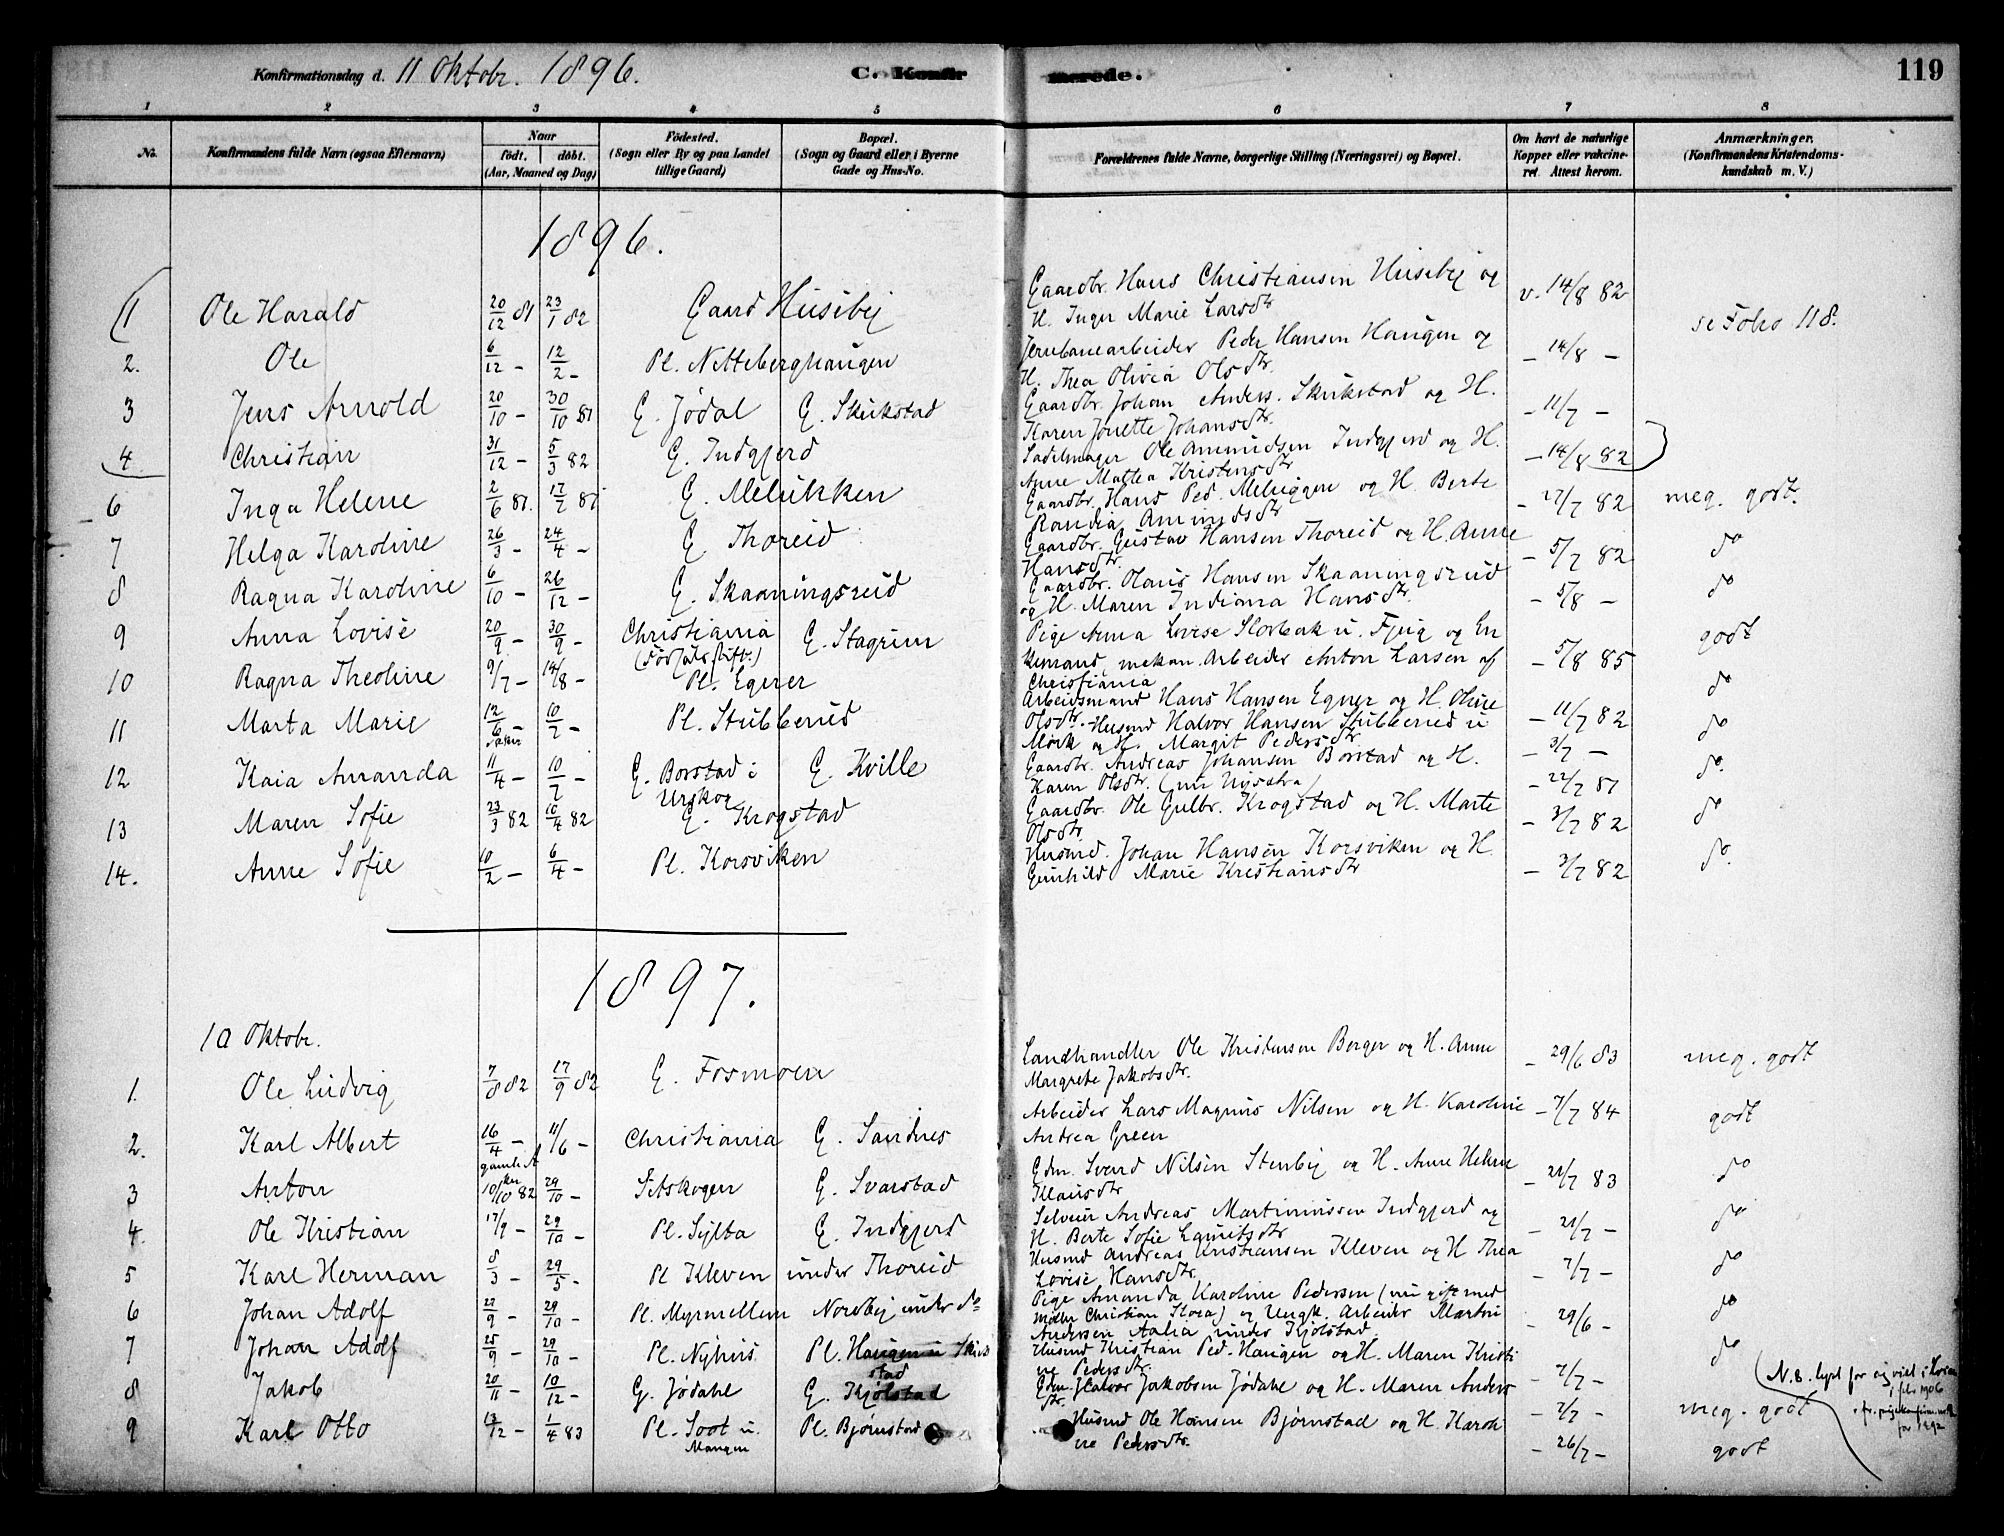 Konfirmationsdag d. 11 Oktobr. 1896. C. Konfirmerede. 119
1 2 3 4 5 6 7 8
No. Konfirmandens fulde Navn (ogsaa Efternavn) Naar født. døbt. (Aar, Maaned og Dag) Fødested. (Sogn eller By og paa Landet tillige Gaard) Bopæl. (Sogn og Gaard eller i Byerne Gade og Hus-No. Forældrenes fulde Navne, borgerlige Stilling (Næringsvei) og Bopæl. Om havt de naturlige Kopper eller vakcineret. Attest herom. Anmærkninger. (Konfirmandens Kristendomskundskab m. V.)
1896.
1 Ole Harald 20/12 81 23/1 82 Gaard Huseby Gaardbr. Hans Christiansen Huseby og H. Inger Marie Larsdtr v. 14/8 82 se Folio 118.
2. Ole 6/12 – 12/2 – Pl. Netteberghaugen Jernbanearbeider Peder Hansen Haugen og H. Thea Olivia Olsdtr. – 14/8 –
3 Jens Arnold 20/10 – 30/10 81 G. Jødal G. Skukstad Gaardbr. Johan Anders. Skukstad og H. Karen Jonette Johansdtr. – 11/7 –
4. Christian 31/12 – 5/3 82 G. Indgjerd Sadelmager Ole Amundsen Indgjerd og H. Anne Mathea Kristensdtr – 14/8 82
6 Inga Helene 2/6 81. 17/7 81 G. Melukken Gaardbr. Hans Ped. Meluggen og H. Berte Randia Amundsdtr – 27/7 82 meg. godt.
7 Helga Karoline 26/3 – 24/4 – G Thoreid Gaardbr. Gustav Hansen Thoreid og H. Anne Hansdtr. – 5/7 82 do
8 Ragna Karoline 6/10 – 26/12 – G. Skaaningsrud Gaardbr. Olaus Hansen Skaaningsrud og H. Maren Indiana Hansdtr. – 5/8 – do
9 Anna Lovise 20/9 – 30/9 – Christiania (Fødselsstift.) G. Stagrim Pige Anna Lovise Slorbak u. Fjeig og Enkemand, mekan. Arbeider Anton Larsen af Christiania – 5/8 85 godt
10 Ragna Theoline 9/7 – 14/8 – Pl. Egner Arbeidsmand Hans Hansen Egner og H. Oline Olsdtr. – 11/7 82 do
11 Marta Marie 12/6 – 10/7 – Pl. Stubberud Husmd Halvor Hansen Stubberud u Mørk og H. Margit Pedersdtr – 3/7 – do
12 Kaia Amanda 11/4 – 10/7 – G. Borstad i Urskog G. Kville Gaardbr. Andreas Johansen Borstad og H. Karen Olsdtr. – 22/7 81 do.
13 Maren Sofie 23/3 82 10/4 82 G. Krogstad Gaardbr. Ole Gulbr. Krogstad og H. Marte Olsdtr. – 3/7 82 do
14. Anne Sofie 10/2 – 6/4 – Pl. Korsviken Husmd. Johan Hansen Korsviken og H. Gunhild Marie Kristiansdtr – 3/7 82 do.
1897.
10 Oktobr.
1. Ole Ludvig 7/8 82 17/9 82 G. Fosmoen Landhandler Ole Kristensen Berger og H. Anne Margrete Jakobsdtr. – 29/6 83 meg. godt
2. Karl Albert 16/4 – 11/6 – Christiania G. Sandnes Arbeider Lars Magnus Nilsen og H. Karoline Andrea Green – 7/7 84 godt
3 Anton 10/10 82 29/10 – Setskogen G. Svarstad Gdm. Svend Nilsen Stenby og H. Anne Helene Klausdtr – 21/7 83 do
4. Ole Kristian 17/9 – 29/10 – Pl. Sylta G. Indgjerd Selveier Andreas Martinussen Indgjerd og H. Berte Sofie Lauritsdtr – 21/7 – do
5 Karl Herman 8/3 – 29/5 – Pl Kleven under Thoreid Husmd Andreas Kristiansen Kleven og H Thea Lovise Hansdtr. – 7/7 – do
6 Johan Adolf 27/9 – 29/10 – Pl. Myrmellem Nordby under do Pige Amanda Karoline Pedersen (nu gift med Møller Christian Slora) og Ungk. Arbeider Martin Andersen Aalia under Kjølstad – 29/6 – do
7 Johan Adolf 25/9 – 29/10 – Pl. Nyhus Pl. Haugen u Skukstad Husmd Kristian Ped. Haugen og H. Maren Kristine Pedersdtr. – 2/7 – do
8 Jakob 20/11 – 10/12 – G. Jødahl G. Kjølstad Gdm. Halvor Jakobsen Jødahl og H. Maren Andersdtr. – 2/7 – meg. godt
9 Karl Otto 13/12 – 1/4 83 Pl. Soot u. Mangen Pl. Bjørnstad Husmd Ole Hansen Bjørnstad og H. Karoline Pedersdtr. – 26/7 – godt
N.B. lyst for